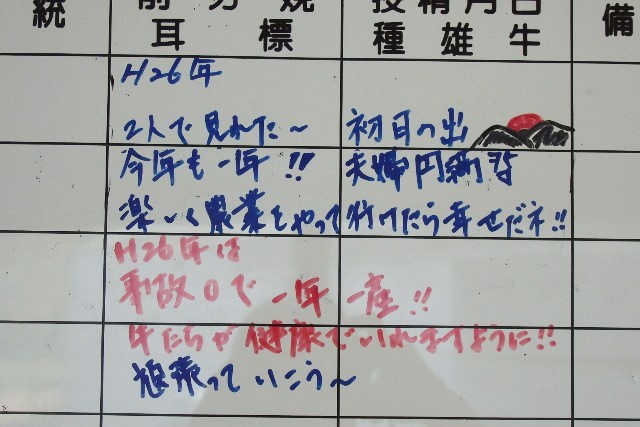 統
耳標
種雄牛
備
H26年
2人で見れた～ 初日の出
今年も一年!! 夫婦円満で
楽しく農業をやって行けたら幸せだネ!!
H26年は
事故0で一年一産!!
牛たちが健康でいれますように!!
頑張っていこう～